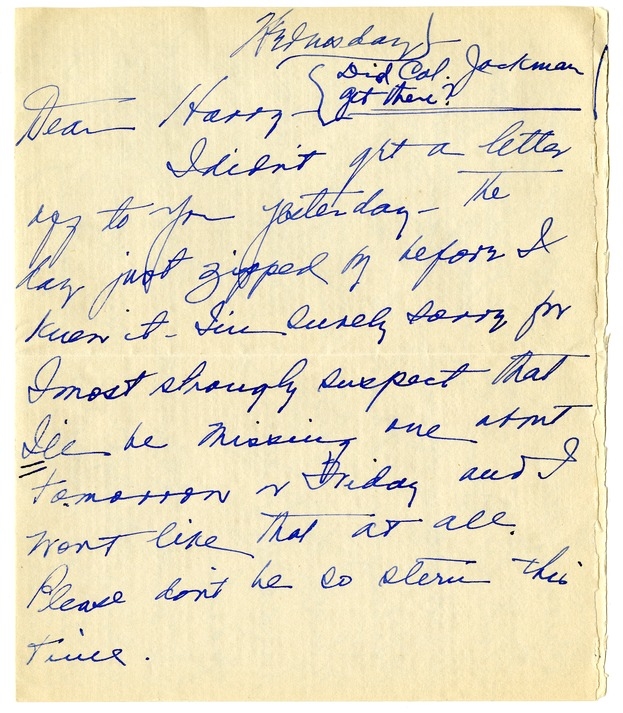 Wednesday
Did Col. Jackman
get there?
Dear Harry—
I didn't get a letter
off to you yesterday— The
day just zipped by before I
knew it— I'm surely sorry for
I most strongly suspect that
I'll be missing one about
tomorrow or Friday and I
won't like that at all.
Please don't be so stern this
time.